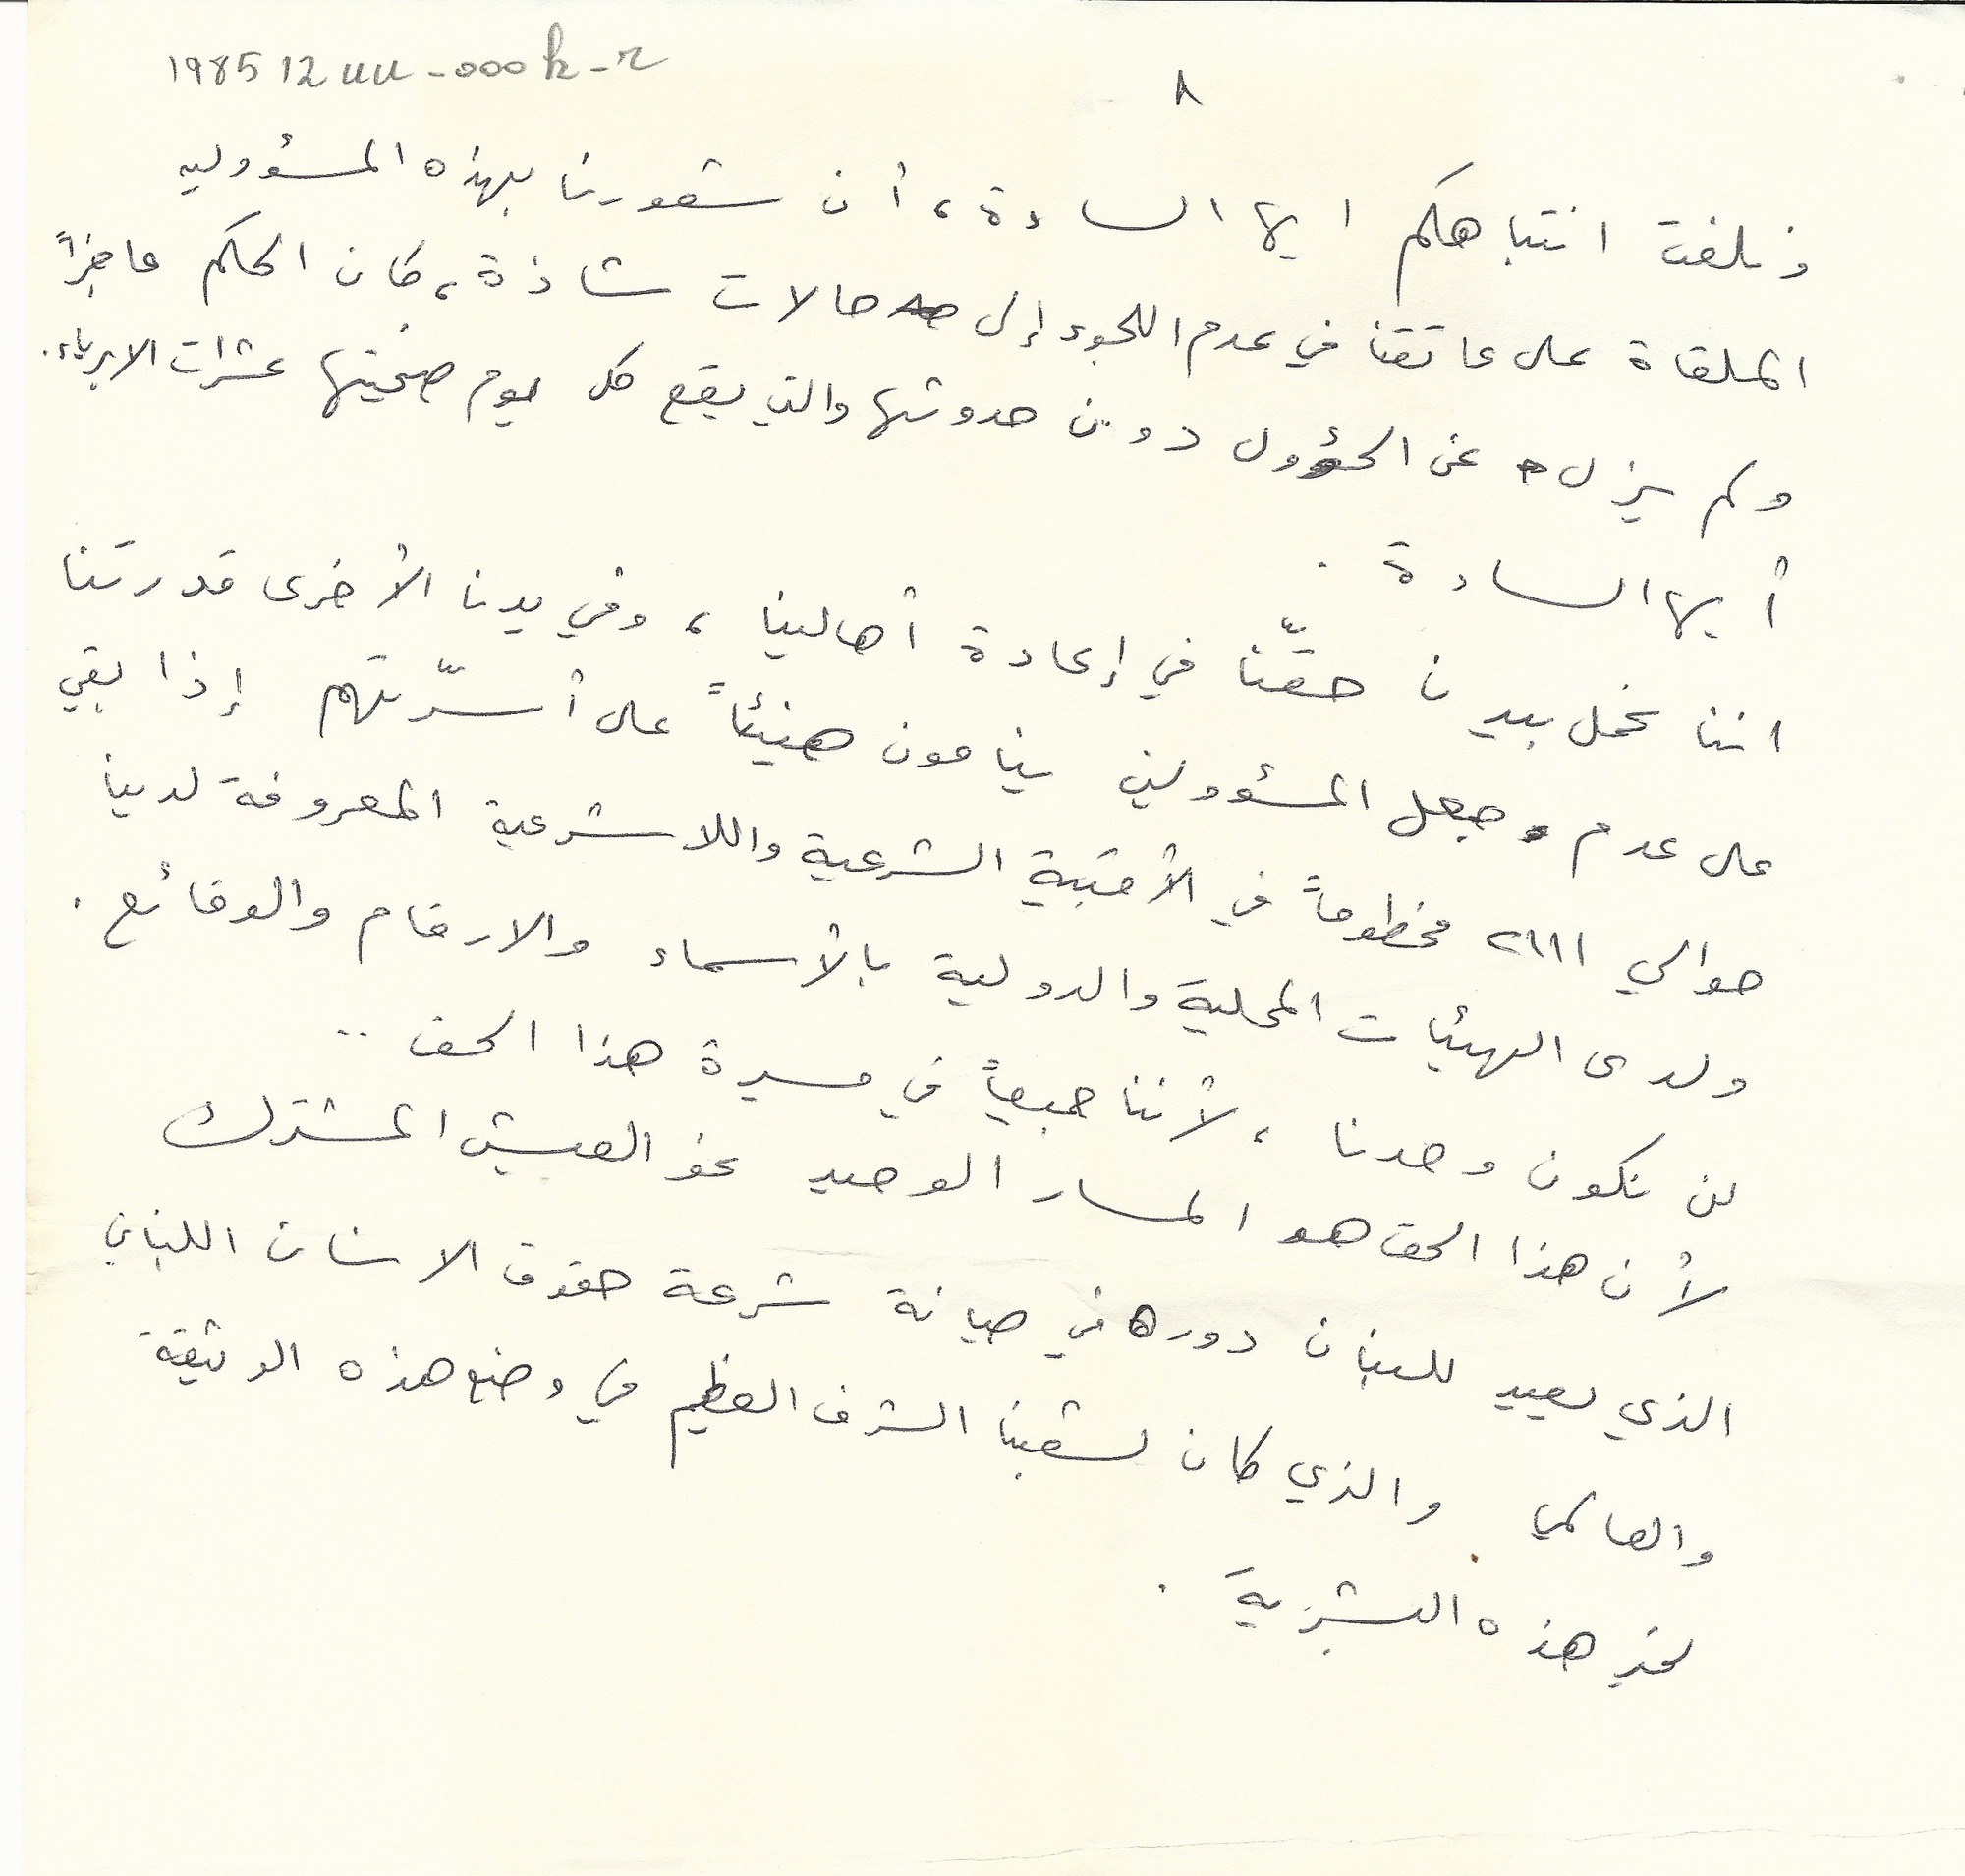 1985 12 uu - 000 k - r
٨
ونلفت انتباهكم ايها السادة، أن شعورنا بهذه المسؤوليه
الملقاة على عاتقنا في عدم اللجوء إلى حالات شاذة، كان الحكم عاجزاً
ولم يزل عن الحؤول دون حدوثها والتي يقع كل يوم ضحيتها عشرات الابرياء.
أيها السادة .
اننا نحمل بيد ن حقّنا في إعادة أهالينا، وفي يدنا الأخرى قدرتنا
على عدم جعل المسؤولين ينامون هنيئاً على أسرّتهم إذا بقي
حوالي ٢١١١ مخطوفاً في الأقبية الشرعية واللاشرعية المعروفة لدينا
ولدى الهيئات المحلية والدولية بالأسماء والارقام والوقائع .
لن نكون وحدنا، لأننا جميعاً في مسيرة هذا الحق ..
لأن هذا الحق هو المسار الوحيد نحو العيش المشترك
الذي يعيد للبنان دوره في صيانة شرعة حقوق الانسان اللبناني
والعالمي والذي كان لشعبنا الشرف العظيم في وضع هذه الوثيقة
لخير هذه البشرية .